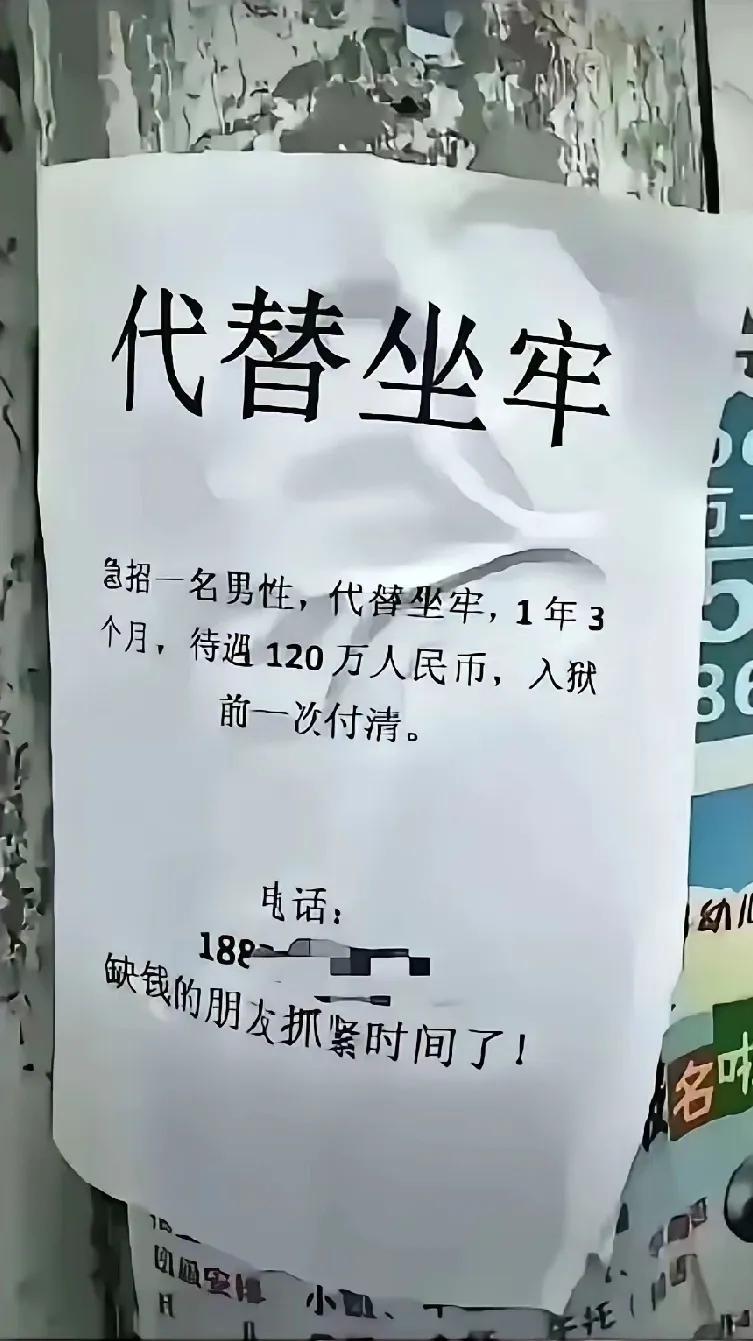 代替坐牢
急招一名男性，代替坐牢，1年3
个月，待遇120万人民币，入狱
前一次付清。
电话：
188
缺钱的朋友抓紧时间了！
幼儿
名
小